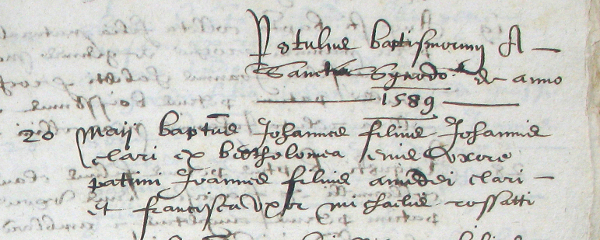 Rotulus baptismorum A
Sancta Synodo de anno
1589
20 Maij baptus Johannes filius Johannis
clari ex bartholomea eius Uxore
patrini Joannes filius amedei clari
et francisca uxor michaelis rossatti